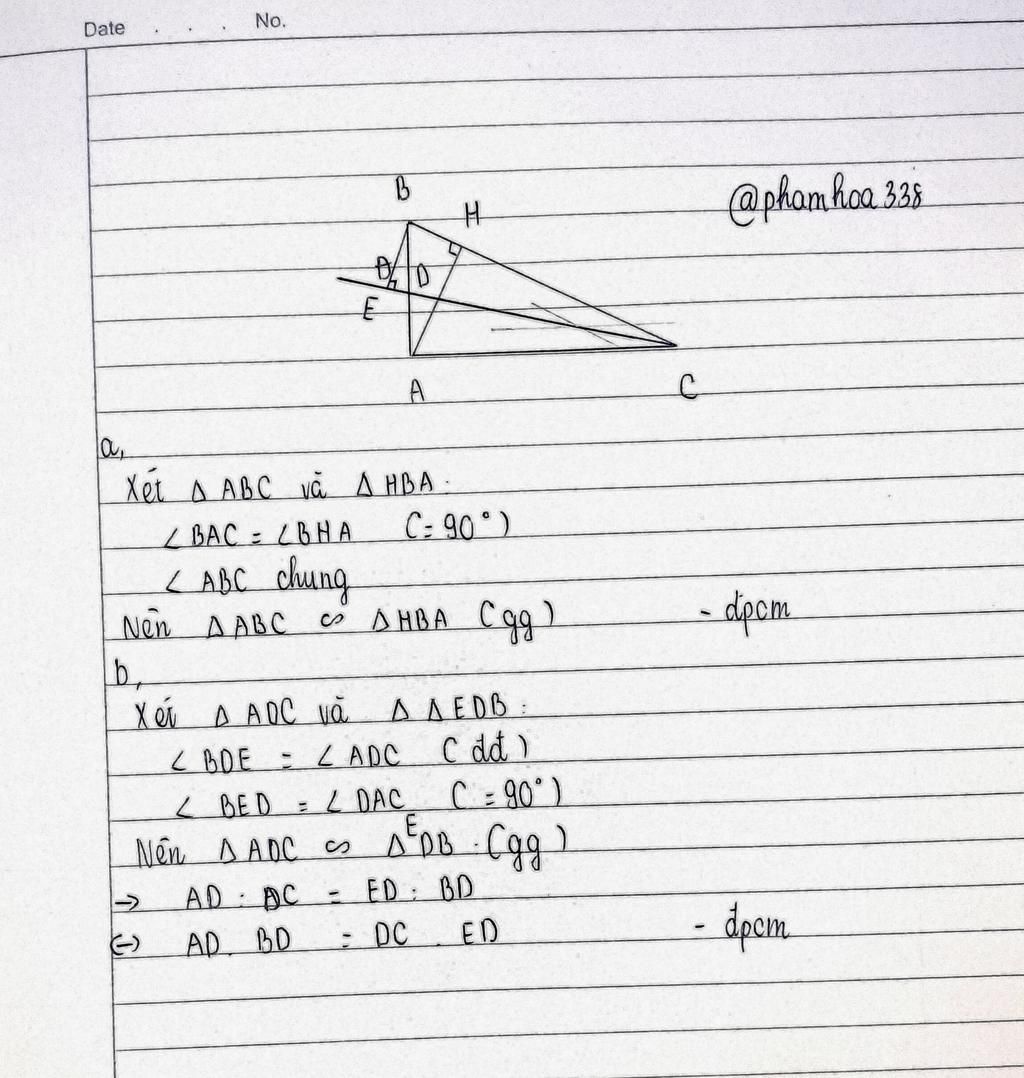 Date . . . No.
@phamhoa338
B
H
D
E
A
C
a,
Xét Δ ABC và Δ HBA:
∠ BAC = ∠ BHA (= 90°)
∠ ABC chung
Nên Δ ABC ∽ Δ HBA (gg) - đpcm
b,
Xét Δ ADC và Δ Δ EDB:
∠ BDE = ∠ ADC (đđ)
∠ BED = ∠ DAC (= 90°)
Nên Δ ADC ∽ Δ EDB . (gg)
→ AD : DC = ED : BD
↔ AD . BD = DC . ED - đpcm